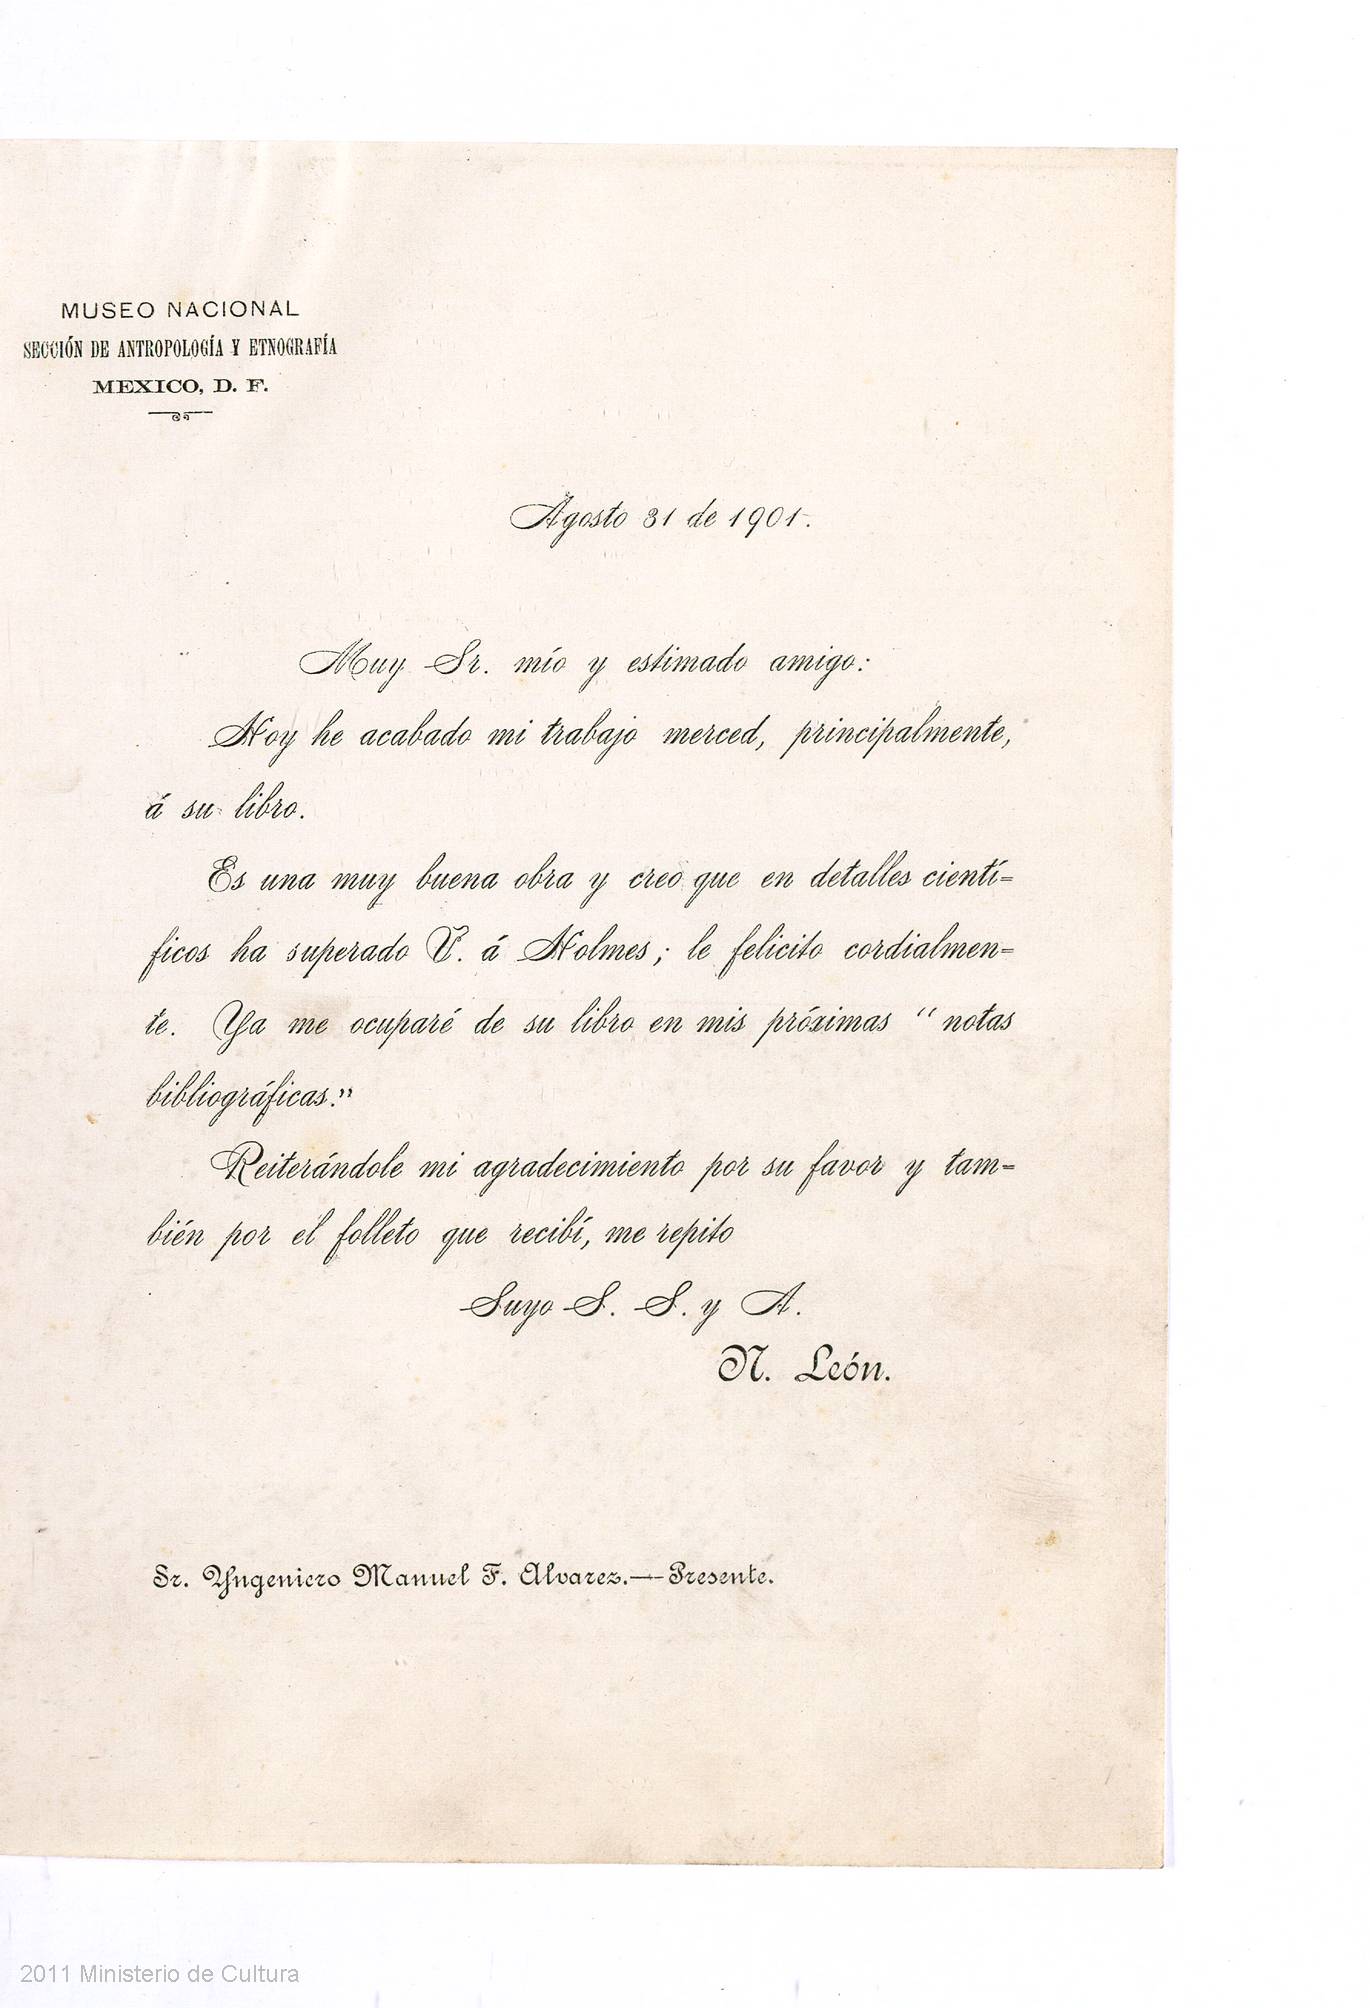 MUSEO NACIONAL
SECCIÓN DE ANTROPOLOGÍA Y ETNOGRAFÍA
MEXICO, D. F.
Agosto 31 de 1901.
Muy Sr. mío y estimado amigo:
Hoy he acabado mi trabajo merced, principalmente,
á su libro.
Es una muy buena obra y creo que en detalles cientí=
ficos ha superado V. á Holmes; le felicito cordialmen=
te. Ya me ocuparé de su libro en mis próximas “notas
bibliográficas.”
Reiterándole mi agradecimiento por su favor y tam=
bién por el folleto que recibí, me repito
Suyo S. S. y A.
N. León.
Sr. Yngeniero Manuel F. Alvarez.—Presente.
2011 Ministerio de Cultura